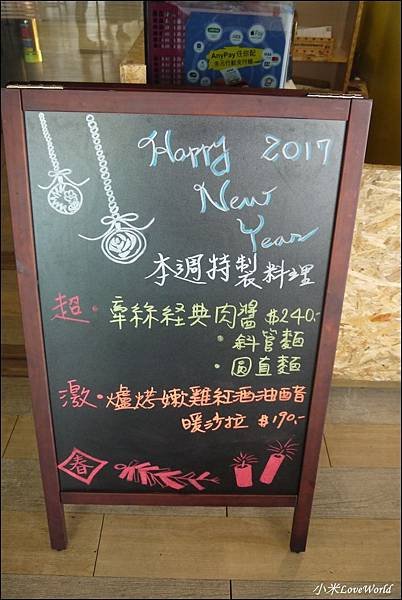 AnyPay 任你配
多元行動支付機
Happy 2017
New
Year
本週特製料理
超・牽絲経典肉醬 $240.-
・斜管麵
・圓直麵
激・爐烤嫩雞紅酒油醋
暖沙拉 $190.-
春
小米LoveWorld